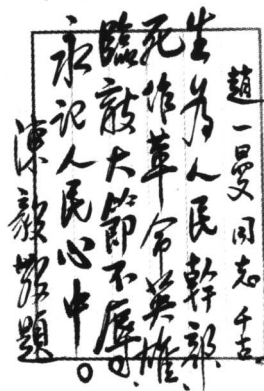 趙一曼同志千古
生為人民幹部、
死作革命英雄、
臨敵大節不辱、
永記人民心中。
陳毅敬題